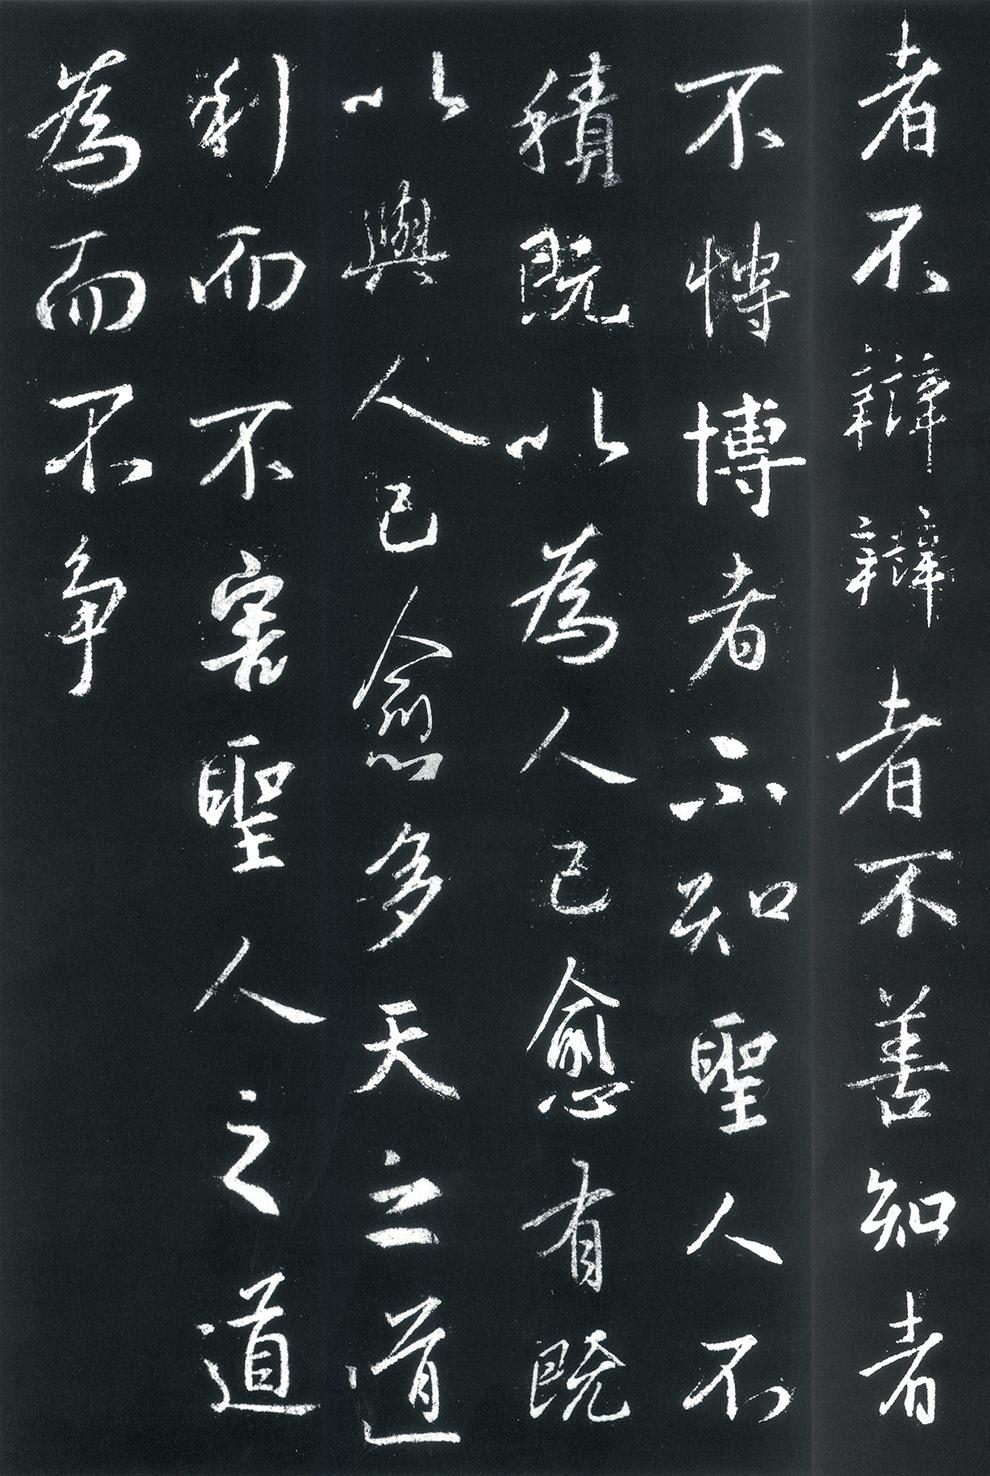 者不辯辯者不善知者
不博博者不知聖人不
積既以為人己愈有既
以與人己愈多天之道
利而不害聖人之道
為而不爭